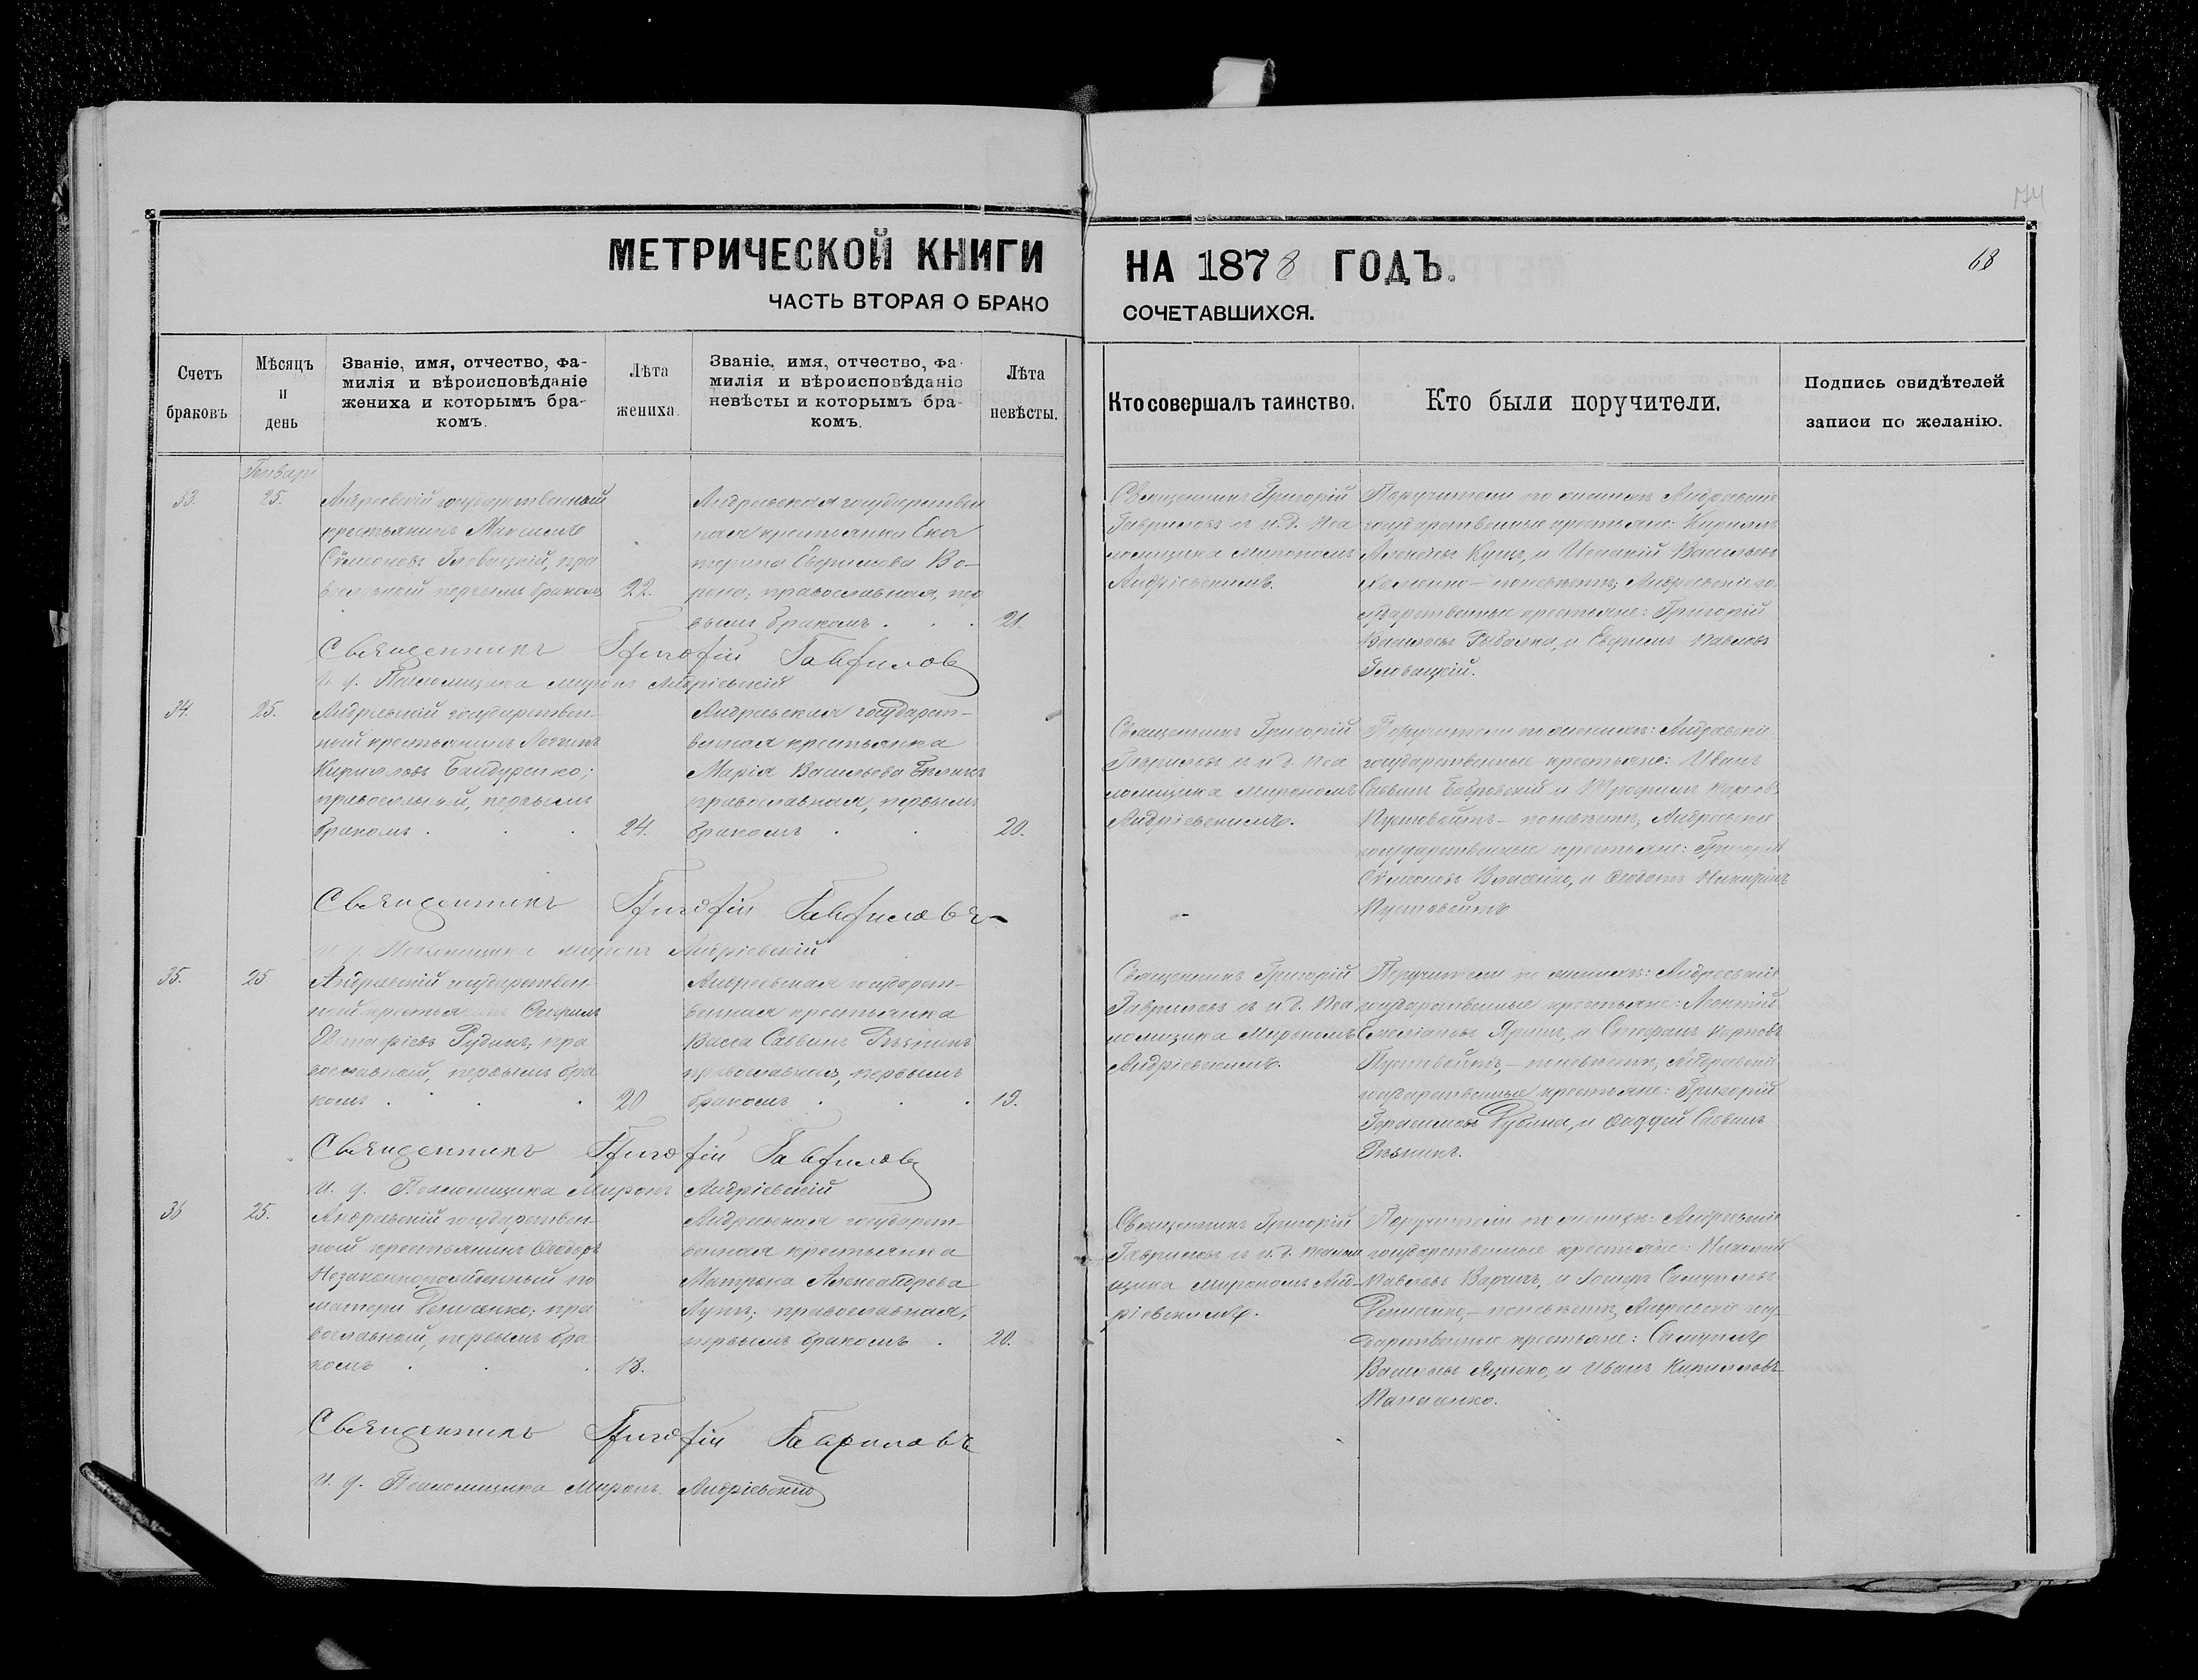 174
МЕТРИЧЕСКОЙ КНИГИ
НА 1878 ГОДЪ.
68
ЧАСТЬ ВТОРАЯ О БРАКО
СОЧЕТАВШИХСЯ.
Счетъ браковъ
Мѣсяцъ и день
Званіе, имя, отчество, фа-
милія и вѣроисповѣданіе
жениха и которымъ бра-
комъ.
Лѣта жениха.
Званіе, имя, отчество, фа-
милія и вѣроисповѣданіе
невѣсты и которымъ бра-
комъ.
Лѣта невѣсты.
Кто совершалъ таинство.
Кто были поручители.
Подпись свидѣтелей
записи по желанію.
Генварь
33.
25.
Андреевскій государственный
крестьянинъ Максимъ
Сѵмеоновъ Гловацкій, пра
вославный первымъ бракомъ
22.
Андреевская государствен
ная крестьянка Ека
терина Ефремова Во-
рона; православная, пер
вымъ бракомъ . . .
21.
Священникъ Григорій
Гавриловъ съ и. д. Пса
ломщика Мирономъ
Андріевскимъ.
Поручители по женихѣ Андреевскіе
государственные крестьяне: Кириллъ
Кущъ, и Васильевъ
по невѣстѣ; Андреевскіе го-
сударственные крестьяне: Григорій
Васильевъ Рыбалка, и Ефремъ Павловъ
Гловацкій.
Священникъ Григорій Гавриловъ
И. д. Псаломщика Миронъ Андріевскій
34.
25.
Андреевскій государствен-
ный крестьянинъ Логгинъ
Кирилловъ Бандуренко;
православный, первымъ
бракомъ . . .
24.
Андреевская государст-
венная крестьянка
Марія Васильева
православная, первымъ
бракомъ . .
20.
Священникъ Григорій
Гавриловъ съ и. д. Пса
ломщика Мирономъ
Андріевскимъ.
Поручители по женихѣ: Андреевскіе
государственные крестьяне: Иванъ
Саввинъ Бобровскій и Трофимъ Карповъ
Пустовойтъ - по невѣстѣ, Андреевскіе
государственные крестьяне: Григорій
Сѵмеоновъ и Ѳеодотъ
Пустовойтъ
Священникъ Григорій Гавриловъ
и. д. Псаломщика Миронъ Андріевскій
35.
25
Андреевскій государствен-
ный крестьянинъ
Рудинъ, пра
вославный, первымъ бра
комъ . . .
20
Андреевская государст-
венная крестьянка
Васса Саввина Рѣзникъ
православная, первымъ
бракомъ . . .
19.
Священникъ Григорій
Гавриловъ съ и. д. Пса
ломщика Мирономъ
Андріевскимъ.
Поручители по женихѣ: Андреевскіе
государственные крестьяне: Леонтій
Емеліановъ и Стефанъ Карповъ
Пустовойтъ, - по невѣстѣ, Андреевскіе
государственные крестьяне: Григорій
Герасимовъ и Ѳаддей Саввинъ
Рѣзникъ.
Священникъ Григорій Гавриловъ
И. д. Псаломщика Миронъ Андріевскій
36
25.
Андреевскій государствен-
ный крестьянинъ Ѳеодоръ
Незаконнорожденный по
матери Денисенко; пра
вославный, первымъ бра
комъ . . .
18.
Андреевская государст-
венная крестьянка
Матрона Александрова
православная,
первымъ бракомъ .
20.
Священникъ Григорій
Гавриловъ съ и. д. Псалом
щика Мирономъ Анд-
ріевскимъ.
Поручители по женихѣ: Андреевскіе
государственные крестьяне: Николай
Павловъ и Іосифъ Самуиловъ
Денисенко, - по невѣстѣ, Андреевскіе госу-
дарственные крестьяне: Самуилъ
Васильевъ Яценко, и Иванъ Кирилловъ
Священникъ Григорій Гавриловъ
И. д. Псаломщика Миронъ Андріевскій